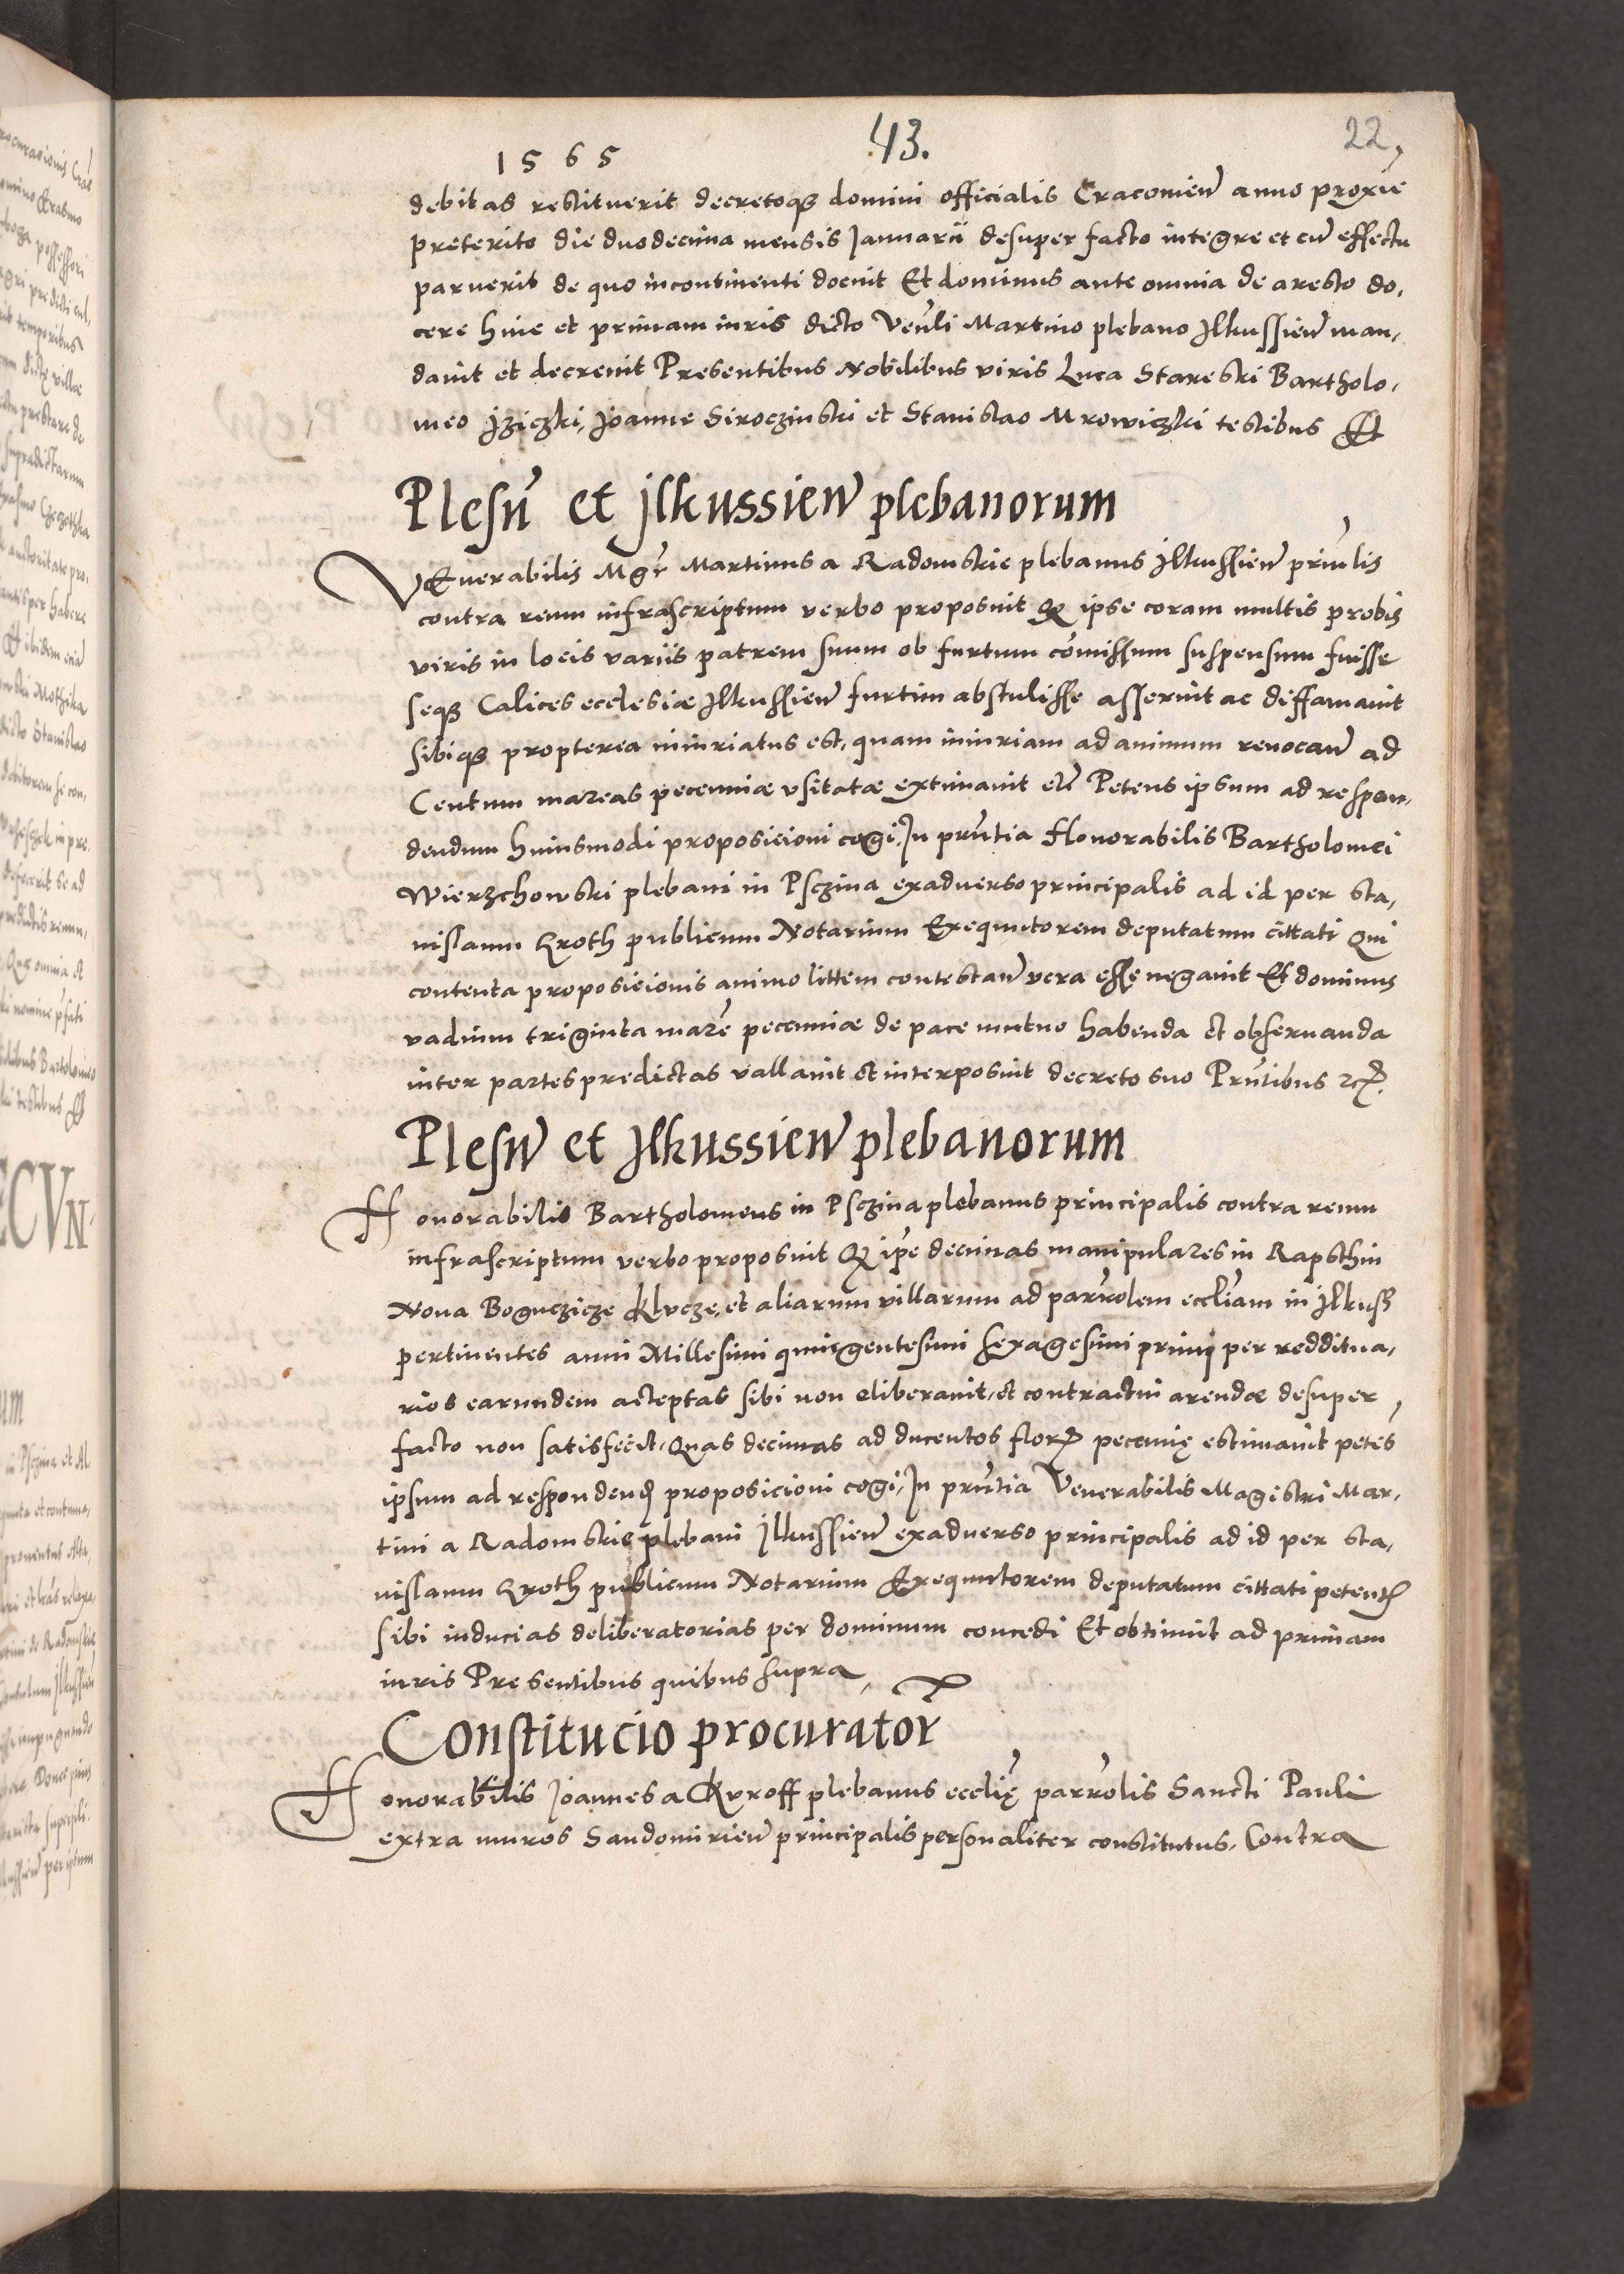 1565 43. 22,
debitas restituerit decretoq3 domini officialis Cracouien̄ anno proxīe
preterito die duodecima mensis Januarii desuper facto integre et cū effectu
paruerit de quo incontinenti docuit Et dominus ante omnia de aresto do,
cere hinc et primam iuris dicto Veńli Martino plebano Ilkussien̄ man,
dauit et decreuit Presentibus Nobilibus viris Luca Stareski Bartholo,
meo Jziczki, Joanne Siroczinski et Stanislao Mrowiczki testibus Et
Plesn̄ et Jlkussien̄ plebanorum
VEnerabilis Mgr̄ Martinus a Radomskie plebanus Ilkussien̄ prin̄lis
contra reum infrascriptum verbo proposuit Q ipse coram multis probis
viris in locis variis patrem suum ob furtum cōmissum suspensum fuisse
seq3 Calices ecclesiæ Ilkussien̄ furtim abstulisse asseruit ac diffamauit
sibiq3 propterea iniuriatus est, quam iniuriam ad animum reuocan̄ ad
Centum marcas pecuniæ vsitatæ extimauit etc̄ Petens ipsum ad respon,
dendum huiusmodi proposicioni cogi, In prn̄tia Honorabilis Bartholomei
Wierzchowski plebani in Psczina exaduerso principalis ad id per Sta,
nislaum Kroth publicum Notarium Exequutorem deputatum cittati Qui
contenta proposicionis animo littem contestan̄ vera esse negauit Et dominus
vadium triginta marc̄ pecuniæ de pace mutuo habenda et obseruanda
inter partes predictas vallauit et interposuit decreto suo Prn̄tibus etc.
Plesn̄ et Ilkussien̄ plebanorum
Honorabilis Bartholomeus in Psczina plebanus principalis contra reum
infrascriptum verbo proposuit Q ip̄e decimas manipulares in Rapsthin
Noua Boguczicze Klucze, et aliarum villarum ad parr̄olem eccl̄iam in Ilkuss
pertinentes anni Millesimi quingentesimi sexagesimi primi per redditua,
rios earundem acceptas sibi non eliberauit, et contractui arendæ desuper
facto non satisfecit, Quas decimas ad ducentos flor. pecunię estimauit petēs
ipsum ad respondend. proposicioni cogi, In prn̄tia Venerabilis Magistri Mar,
tini a Radomskie plebani Ilkussien̄ exaduerso principalis ad id per Sta,
nislaum Kroth publicum Notarium Exequutorem deputatum cittati petent.
sibi inducias deliberatorias per dominum concedi Et obtinuit ad primam
iuris Presentibus quibus supra,
Constitucio procurator̄
Honorabilis Joannes a Kuroff plebanus eccl̄ię parr̄olis Sancti Pauli
extra muros Sandomirien̄ principalis personaliter constitutus, Contra